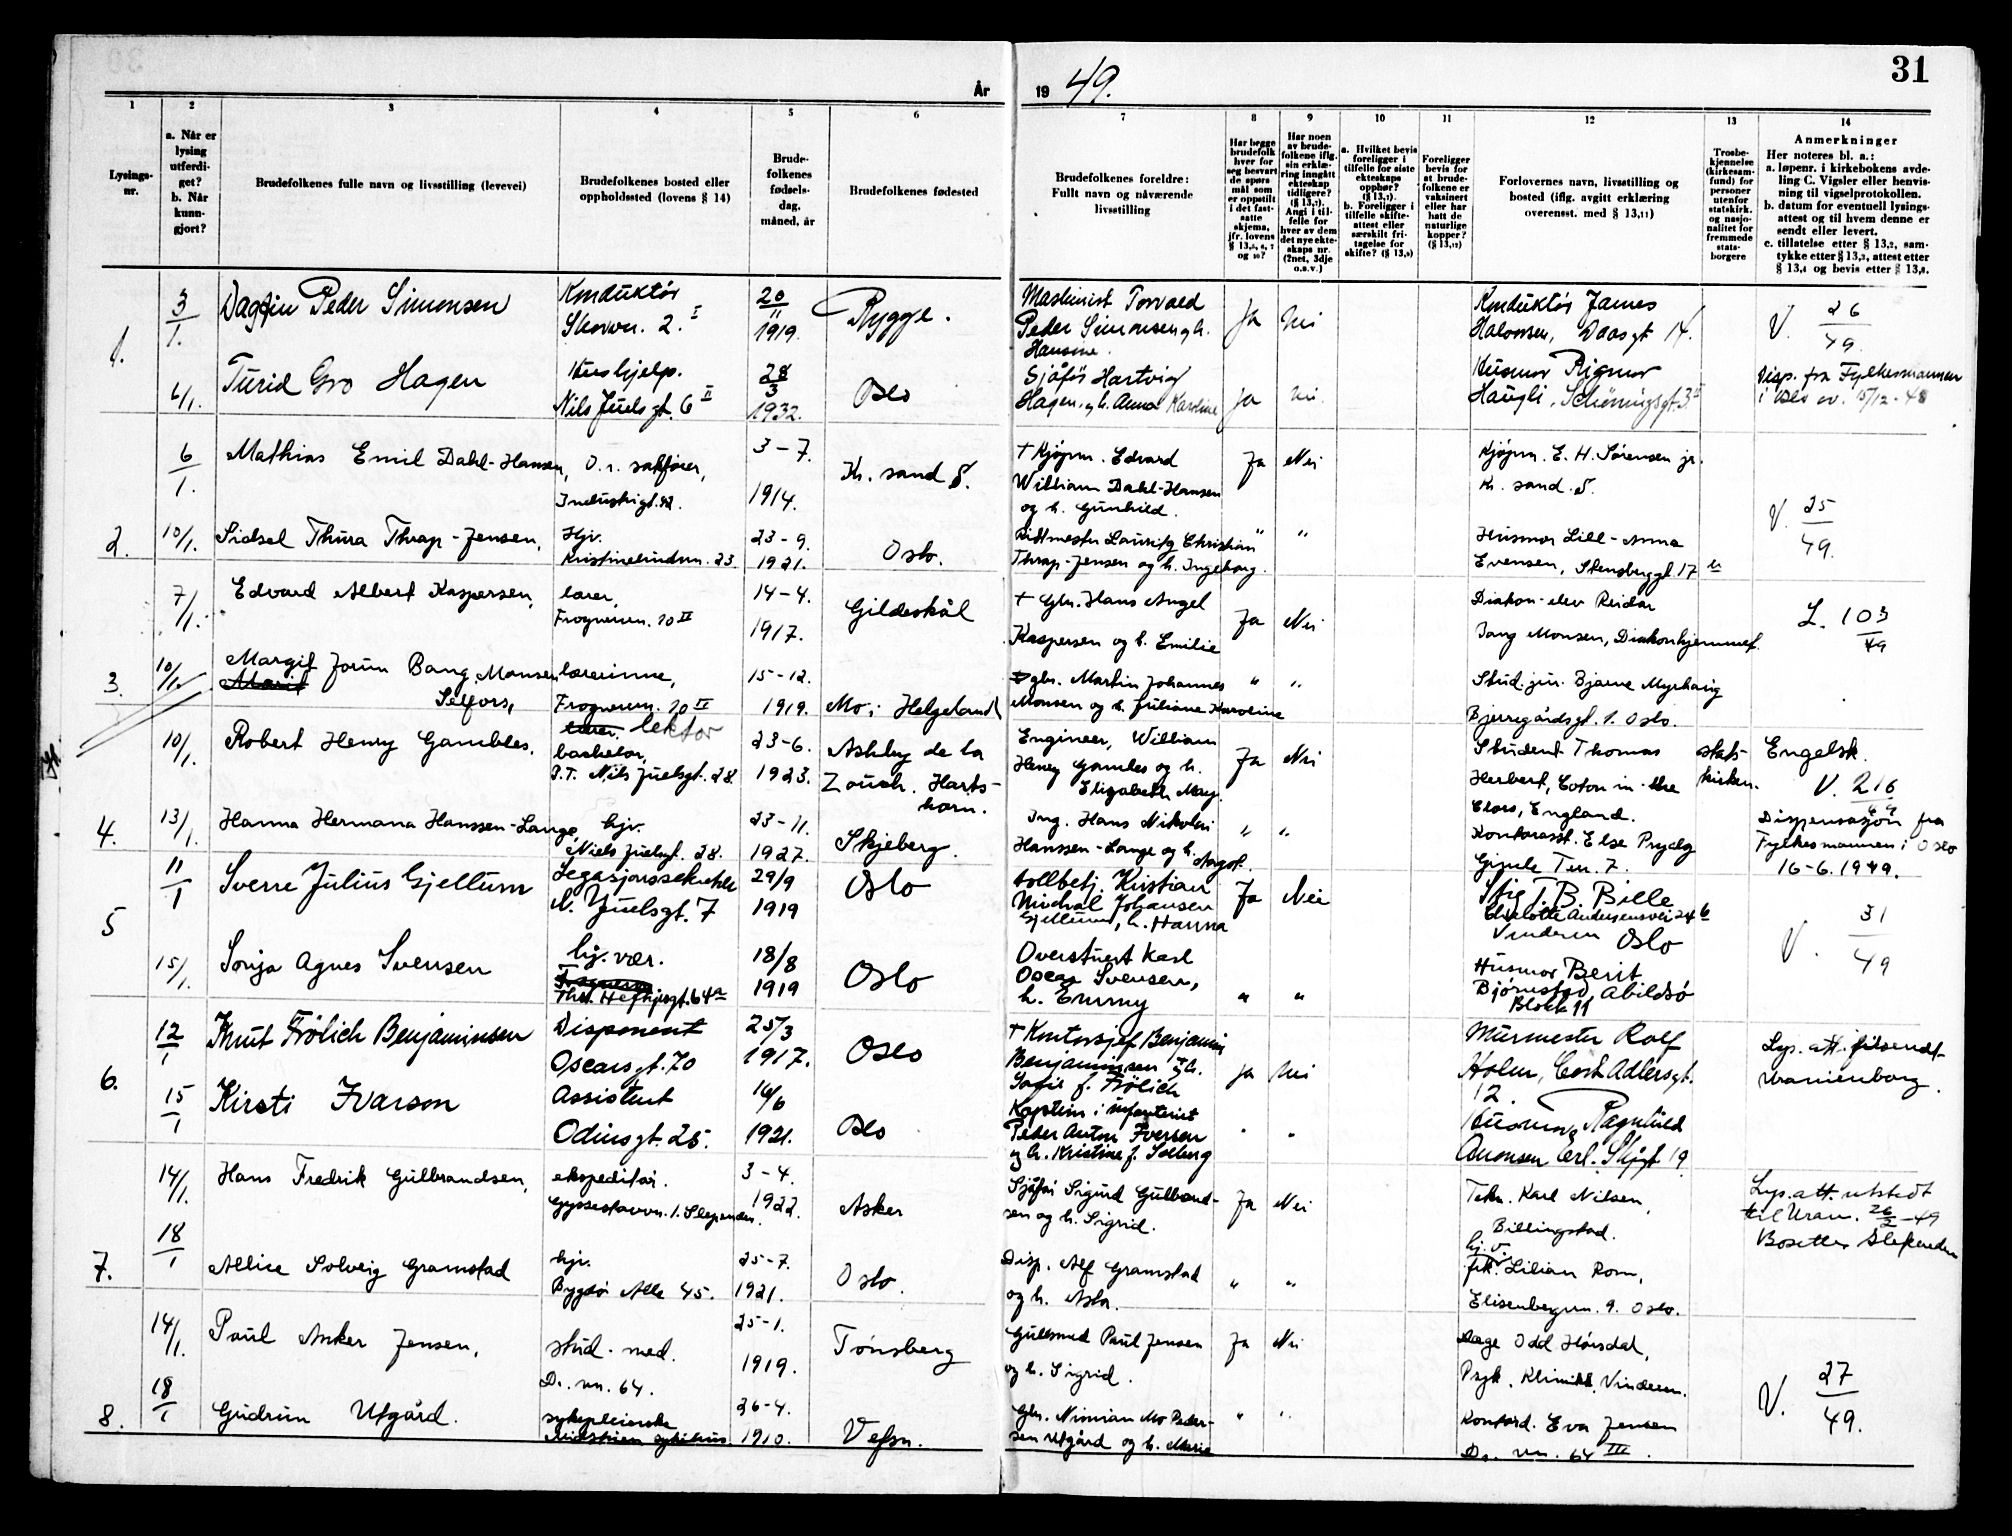 31
År 1949.
1 2 3 4 5 6 7 8 9 10 11 12 13 14
Lysings-
nr.
a. Når er
lysing
utferdi-
get?
b. Når
kunn-
gjort?
Brudefolkenes fulle navn og livsstilling (levevei)
Brudefolkenes bosted eller
oppholdssted (lovens § 14)
Brude-
folkenes
fødsels-
dag,
måned, år
Brudefolkenes fødested
Brudefolkenes foreldre:
Fullt navn og nåværende
livsstilling
Har begge
brudefolk
hver for
seg besvart
de spørs
mål som
er oppstilt
i det fast-
satte
skjema,
jfr. lovens
§ 13,5, 6, 7
og 10?
Har noen
av brude-
folkene iflg.
sin erklæ-
ring inngått
ekteskap
tidligere?
(§ 13,7).
Angi i til-
felle for
hver av dem
det nye ekte-
skaps nr.
(2net, 3dje
o.s.v.)
a. Hvilket bevis
foreligger i
tilfelle for siste
ekteskaps
opphør?
(§ 13,7).
b. Foreligger i
tilfelle skifte-
attest eller
særskilt fri-
tagelse for
skifte? (§ 13,9)
Foreligger
bevis for
at brude-
folkene er
vaksinert
eller har
hatt de
naturlige
kopper?
(§ 13,12)
Forlovernes navn, livsstilling og
bosted (iflg. avgitt erklæring
overensst. med § 13,11)
Trosbe-
kjennelse
(kirkesam-
fund) for
personer
utenfor
statskirk.
og nasjo-
nalitet for
fremmede
stats-
borgere
Anmerkninger
Her noteres bl. a.:
a. løpenr. i kirkebokens avde-
ling C. Vigsler eller henvis-
ning til vigselprotokollen.
b. datum for eventuell lysings-
attest og til hvem denne er
sendt eller levert.
c. tillatelse etter § 13,2, sam-
tykke etter § 13,3, attest etter
§ 13,4 og bevis etter § 13,8.
1.
3/1.
Dagfin Peder Simonsen
Konduktør
Skovvn. 2. I
20/11
1919.
Rygge.
Maskinist Torvald
Peder Simonsen og h.
Hansine.
Ja Nei
Konduktør James
Halvorsen, Daasgt 14.
V. 26/49
6/1.
Turid Gro Hagen
Hushjelp.
Nils Juelsgt. 6 II
28/3
1932.
Oslo
Sjåfør Hartvig
Hagen, og h. Anna Karoline
Ja Nei.
Husmor Rigmor
Haugli, Schøningsgt. 3 II
Disp. fra Fylkesmannen
i Oslo av. 15/12-48
2.
6/1.
Mathias Emil Dahl-Hansen,
O.r. sakfører,
Industrigt. 42.
3-7.
1914.
Kr. sand S.
+ Kjøpm. Edvard
William Dahl-Hansen
og h. Gunhild.
Ja Nei
Kjøpm. E. H. Sørensen jr.
Kr. sand. S.
V. 25/49.
10/1.
Sidsel Thura Thrap-Jensen,
Hjv.
Kristinelundvn. 23
23-9.
1921.
Oslo.
Ritmester Lauritz Christian
Thrap-Jensen og h. Ingeborg.
" "
Husmor Lill-Anna
Evensen, Stensberggt 17 b
3.
7/1.
Edvard Albert Kaspersen,
lærer,
Frognervn. 10 II
14-4.
1917.
Gildeskål
+ Gbr. Hans Angel
Kaspersen og h. Emilie
Ja Nei
Diakon-elev Reidar
Jang Monsen, Diakonhjemmet.
L. 103/49
10/1.
Margit Jorun Bang Monsen
Marit
Selfors,
lærerinne,
Frognervn. 10 II
15-12.
1919.
Mo i Helgeland
gbr. Martin Johannes
Monsen og h. Juliane Karoline
" "
Stud. jur. Bjarne Myrhaug
Bjerregårdsgt. 1. Oslo.
4.
10/1.
Robert Henry Gambles,
lærer, lektor
bachelor,
P.T. Nils Juelsgt. 28.
23-6.
1923.
Ashby de la
Zouch. Harts-
horn.
Engineer, William
Henry Gambles og h.
Elizabeth May.
Ja Nei
Student Thomas
Herbert, Coton in-the
Elms, England.
stats-
kirken.
Engelsk.
V. 216/49
13/1.
Hanna Hermana Hanssen-Lange,
hjv.
Niels Juelsgt. 28.
23-11.
1927.
Skjeberg.
Ing. Hans Nikolai
Hanssen-Lange og h. Aagot.
" "
Kontorasst. Else Prydz
Gimle Terr. 7.
Dispensasjon fra
Fylkesmannen i Oslo
16-6.1949.
5
11/1
Sverre Julius Gjellum
Legasjonssekretær
N. Juelsgt. 7
29/9
1919
Oslo
tollbetj. Kristian
Michal Johansen
Gjellum, h. Hanna
Ja Nei
Stig T. B. Bille
Charlotte Andersensvei 24 b
Vinderen Oslo
V. 31/49
15/1.
Sonja Agnes Svensen
hj. vær.
Thos. Heftyesgt. 64 a
18/8
1919
Oslo
Overstuert Karl
Oscar Svensen,
h. Emmy
" "
Husmor Berit
Bjørnstad Abildsø
Blokk 11
6.
12/1
Knut Frölich Benjaminsen
Disponent
Oscarsgt. 70
25/3
1917.
Oslo
+ Kontorsjef Benjamin
Benjaminsen og h.
Sofie f. Frölich
Ja Nei
Murmester Rolf
Holm, Cort Adlersgt.
12.
Lys. att. tilsendt
Uranienborg.
15/1
Kirsti Ivarson
Assistent
Odinsgt. 25.
16/6
1921.
Oslo
Kaptein i infanteriet
Peder Anton Iversen
og h. Kristine f. Solberg
" "
Husmor Ragnhild
Amonsen Erl. Skjgt 19
7.
14/1.
Hans Fredrik Gulbrandsen,
ekspeditør.
Gyssestadvn. 1. Slependen.
3-4.
1922.
Asker
Sjåfør Sigurd Gulbrand-
sen og h. Sigrid.
Ja Nei
Tekn. Karl Nilsen,
Billingstad.
Lys. att. utstedt
til Uran. 26/2-49
Bosetter Slependen
18/1
Allice Solveig Gramstad
hjv.
Bygdø Alle 45.
25-7.
1921.
Oslo.
Disp. Alf Gramstad
og h. Asta.
" "
hj. v.
frk. Lilian Rom,
Elisenbergvn. 9. Oslo.
8.
14/1.
Paul Anker Jensen,
stud. med.
Dr. vn. 64.
25-1.
1919.
Tønsberg
Gullsmed Paul Jensen
og h. Sigrid.
Ja Nei
Læge Odd Hårsdal,
Psyk. Klinikk, Vinderen.
V. 27/49.
18/1
Gudrun Utgård.
sykepleierske
26-4.
1910.
Vefsn.
Gbr. Nimian Mo Peder-
sen Utgård og h. Marie
" "
Kontord. Eva Jensen
Dr. vn. 64 III.